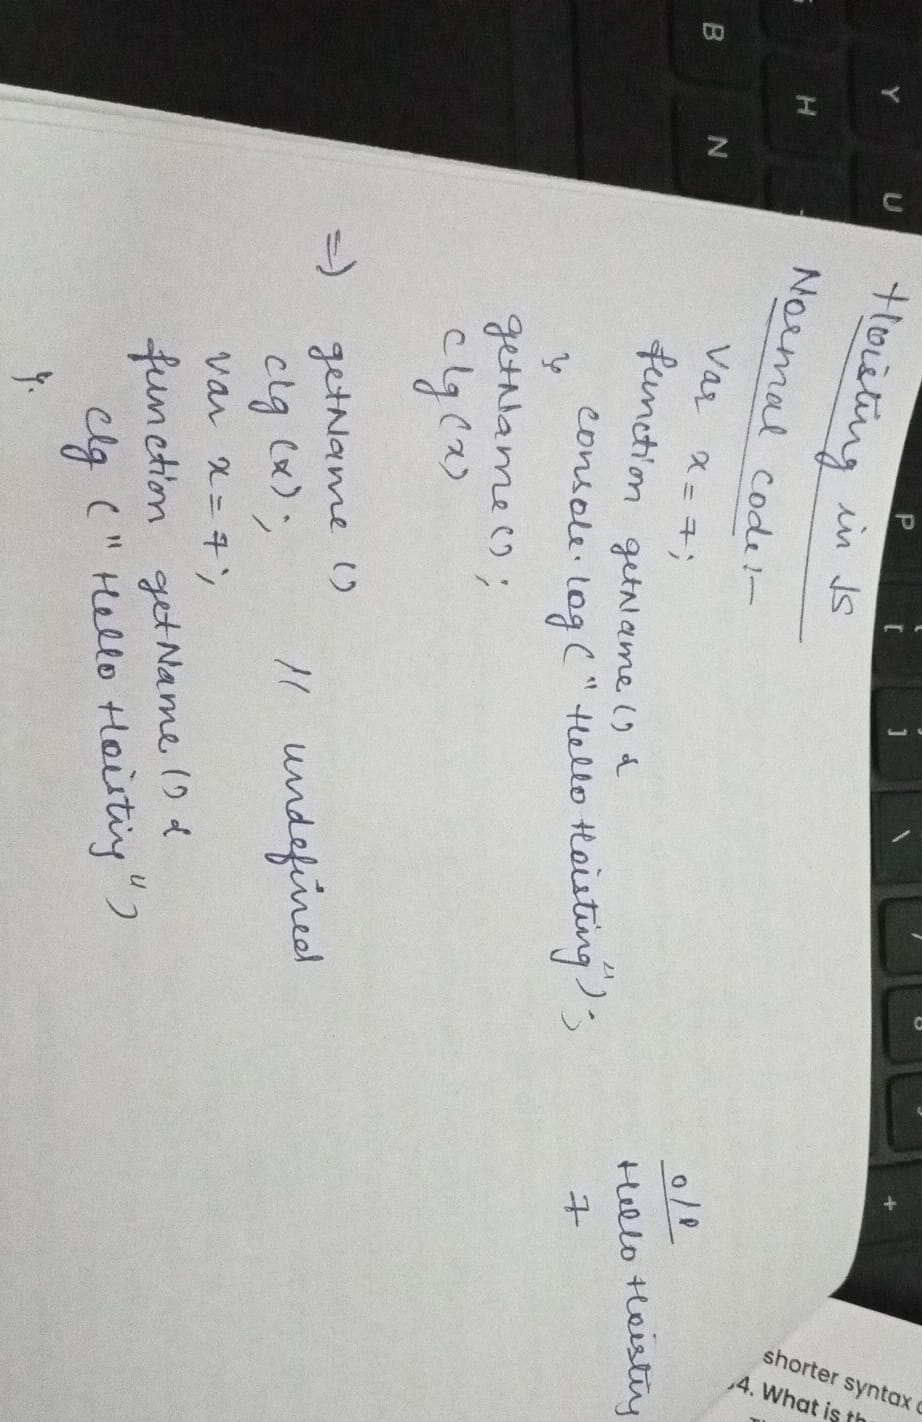 Hoisting in JS
Normal code:-
var x = 7;
function getName () {
console.log ("Hello Hoisting");
}
getName();
clg (x)
o/p
Hello Hoisting
7
=> getName ()
clg (x); // undefined
var x = 7;
function getName () {
clg ("Hello Hoisting")
}.
shorter syntax
4. What is th
Y U P [ ] \
H
B N
+